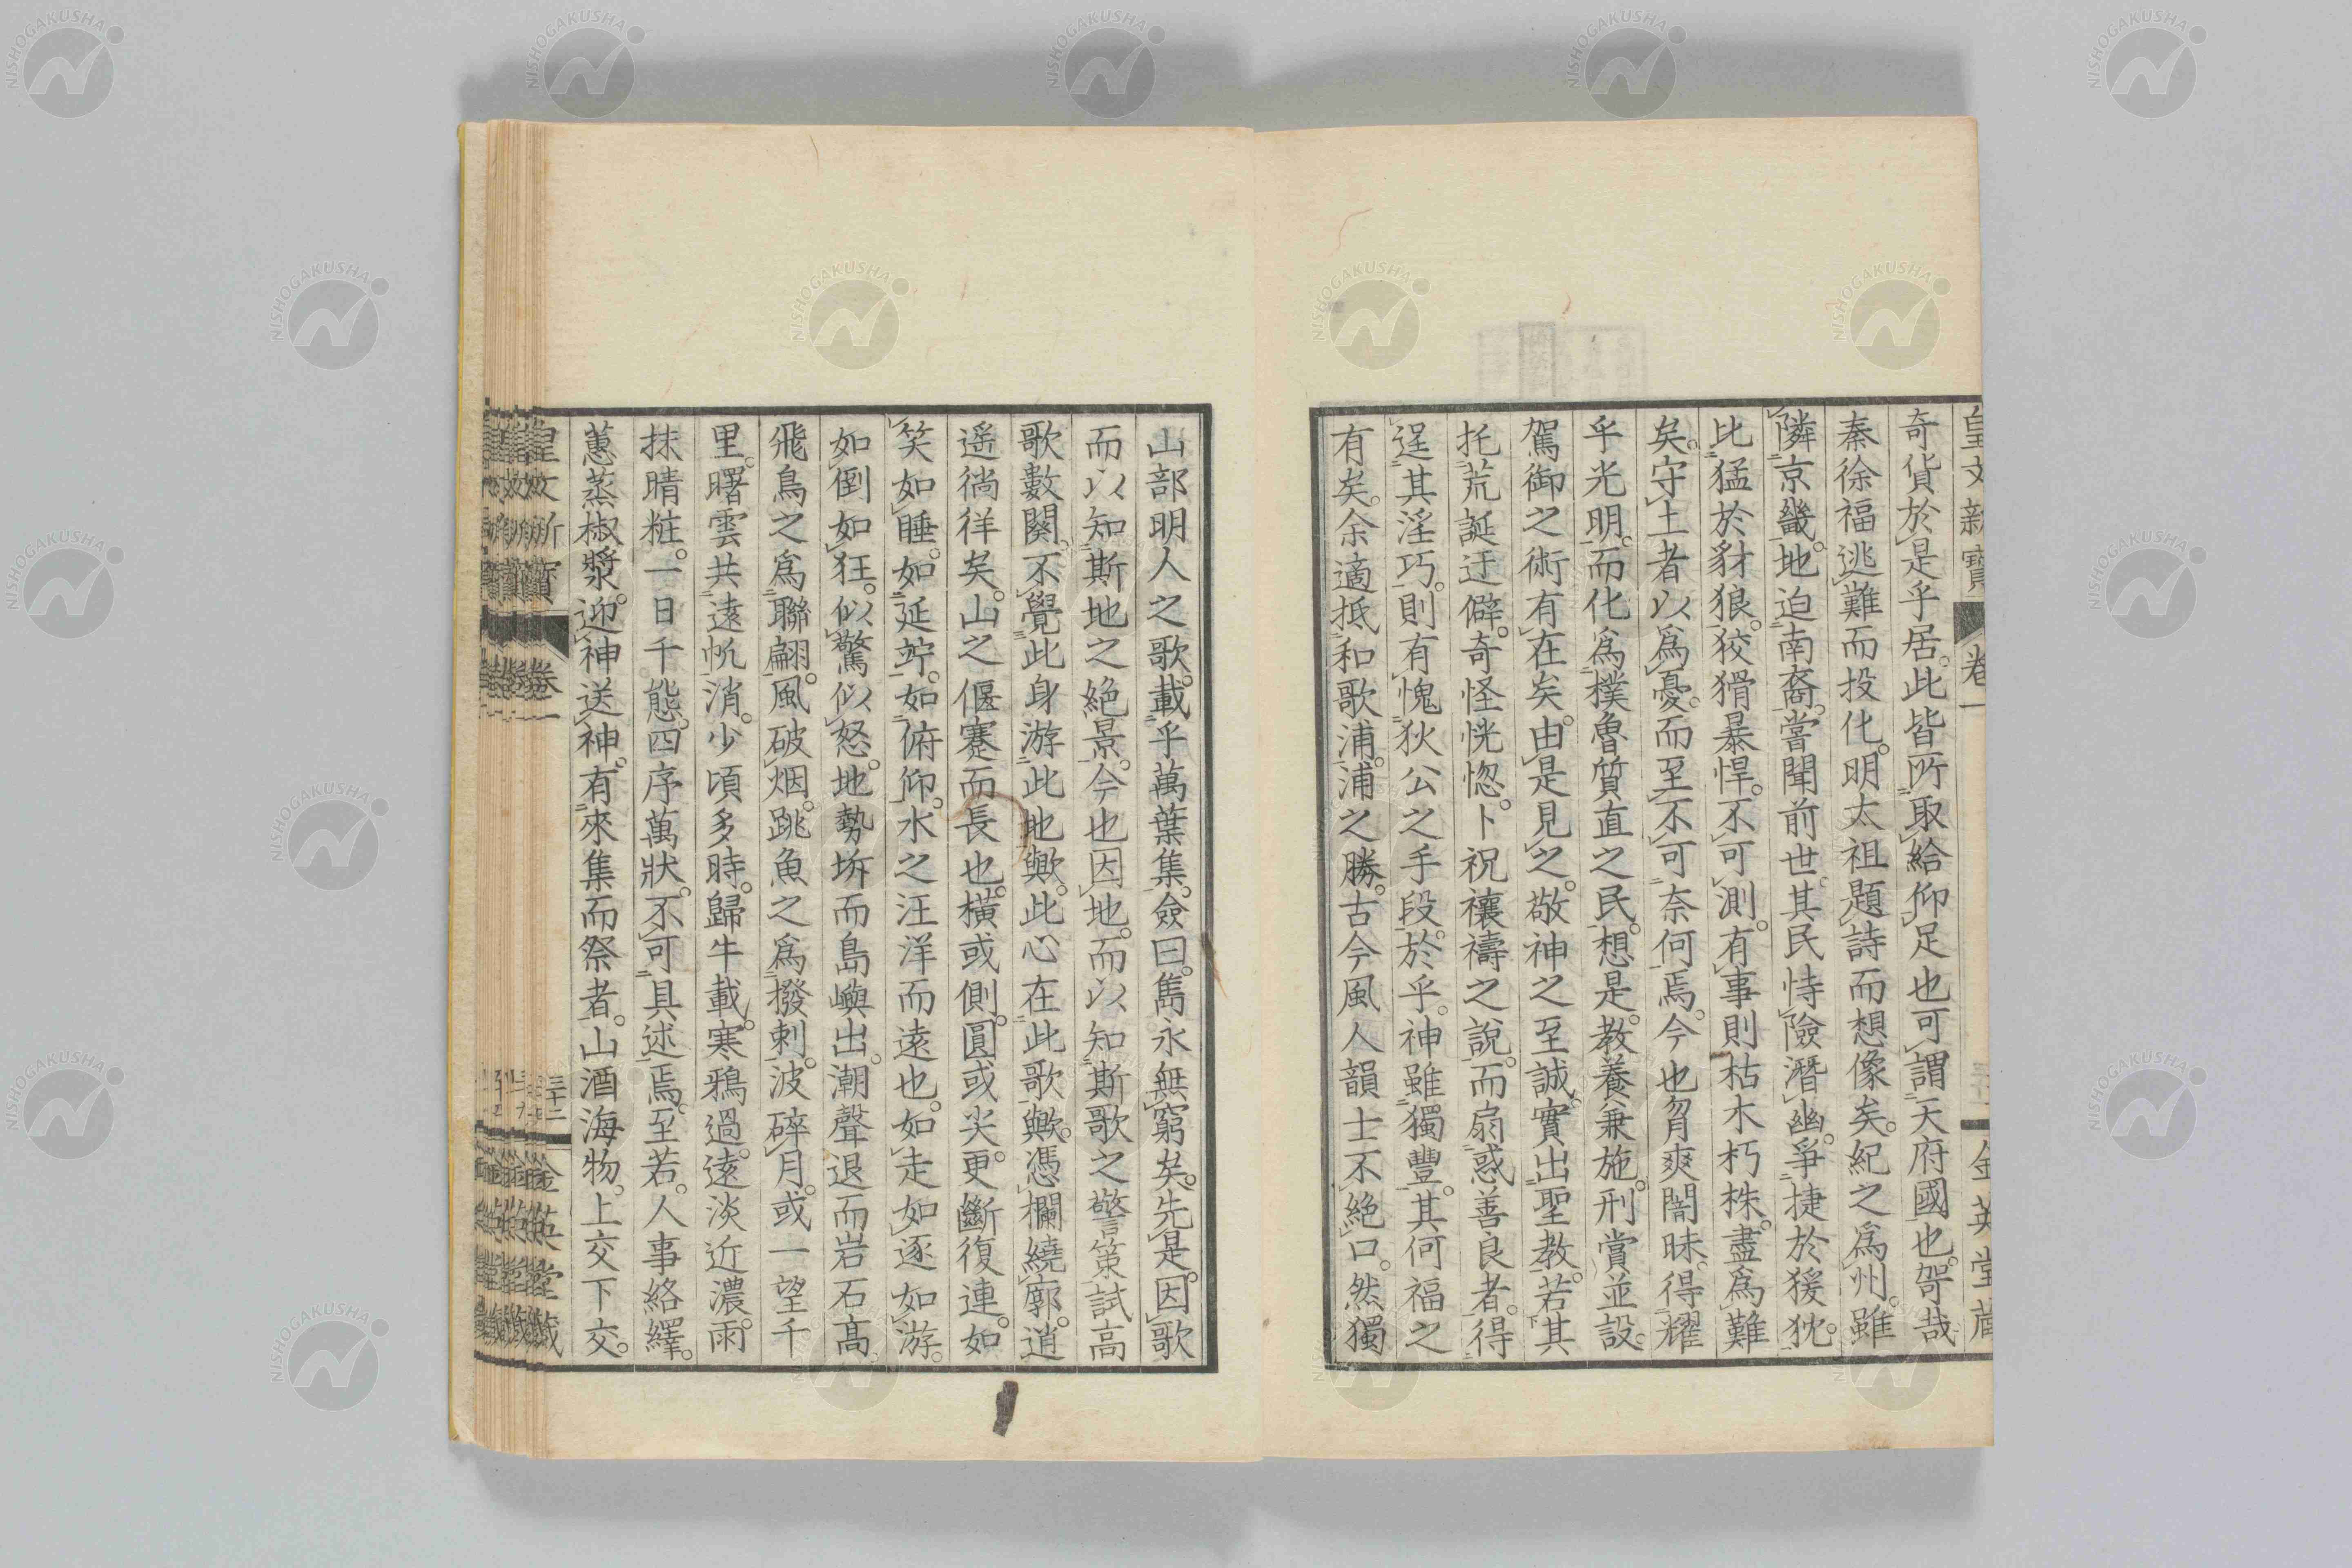 皇文新寶 卷一 金英堂藏
奇貨於是乎居。此皆所取給仰足也可謂天府國也。哿哉
秦徐福逃難而投化。明太祖題詩而想像矣。紀之爲州。雖
隣京畿。地迫南裔。嘗聞前世。其民恃險潛幽。爭捷於猨狖。
比猛於豺狼。狡猾暴悍。不可測。有事則枯木朽株。盡爲難
矣。守土者以爲憂。而至不可奈何焉。今也曶爽闇昧。得耀
乎光明。而化爲樸魯質直之民。想是教養兼施。刑賞並設。
駕御之術有在矣。由是見之。敬神之至誠。實出聖教。若其
托荒誕迂僻。奇怪恍惚。卜祝禳禱之說。而扇惑善良者。得
逞其淫巧。則有愧狄公之手段。於乎。神雖獨豐。其何福之
有矣。余適抵和歌浦。浦之勝。古今風人韻士不絕口。然獨
山部明人之歌。載乎萬葉集。僉曰。雋永無窮矣。先是。因歌
而以知斯地之絕景。今也因地。而以知斯歌之警策試高
歌數闋。不覺此身游此地歟。此心在此歌歟。憑欄繞廓。逍
遥徜徉矣。山之偃蹇而長也。横或側。圓或尖。更斷復連。如
笑如睡。如延竚。如俯仰。水之汪洋而遠也。如走如逐如游。
如倒如狂。似驚似怒。地勢坼而島嶼出。潮聲退而岩石高
飛鳥之爲聯翩。風破烟。跳魚之爲撥剌。波碎月。或一望千
里。曙雲共遠帆消。少頃多時。歸牛載。寒鴉過。遠淡近濃。雨
抹晴粧。一日千態。四序萬狀。不可具述焉。至若。人事絡繹。
蕙蒸椒漿。迎神送神。有來集而祭者。山酒海物。上交下交。
皇文新寶 卷一 三十二 金英堂藏